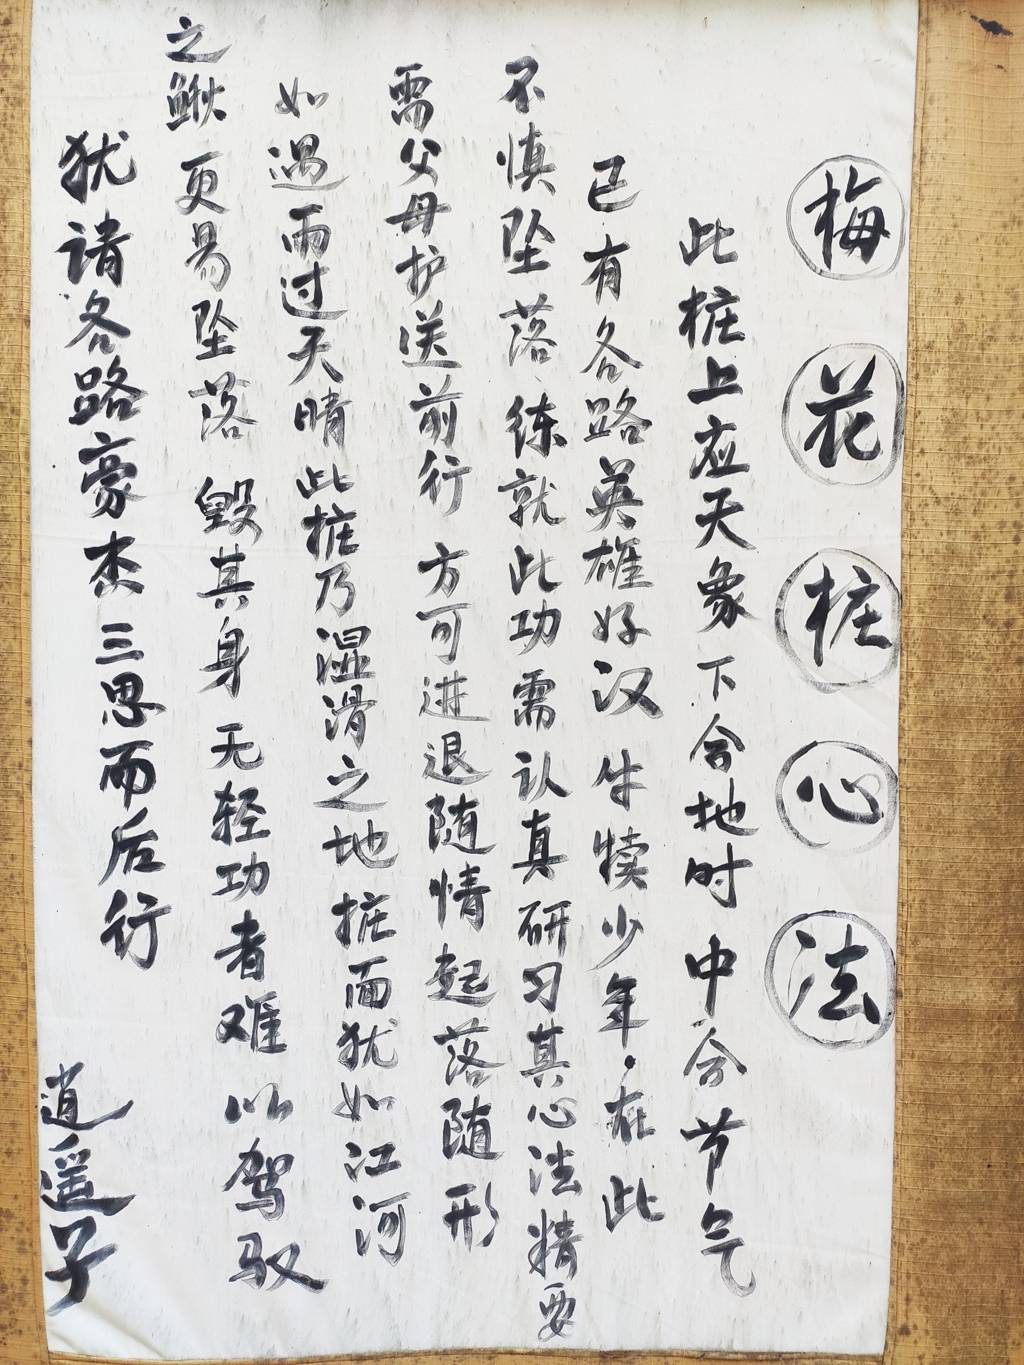 梅花桩心法
此桩上应天象下合地时中合节气
已有各路英雄好汉牛犊少年·在此
不慎坠落练就此功需认真研习其心法精要
需父母护送前行方可进退随情起落随形
如遇雨过天晴此桩乃湿滑之地桩面犹如江河
之鳅更易坠落毁其身无轻功者难以驾驭
犹请各路豪杰三思而后行
逍遥子